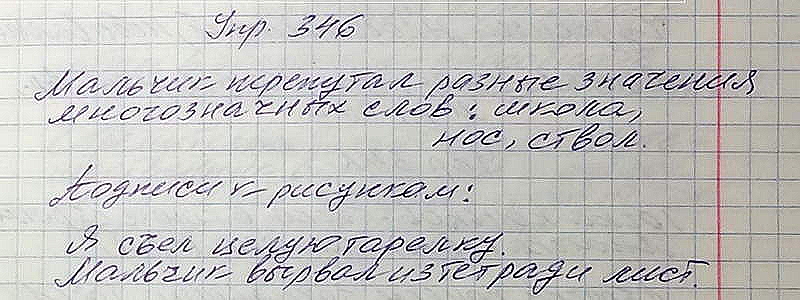 Упр. 346
Мальчик перепутал разные значения
многозначных слов: школа,
нос, ствол.
Подписи к рисункам:
Я съел целую тарелку.
Мальчик вырвал из тетради лист.